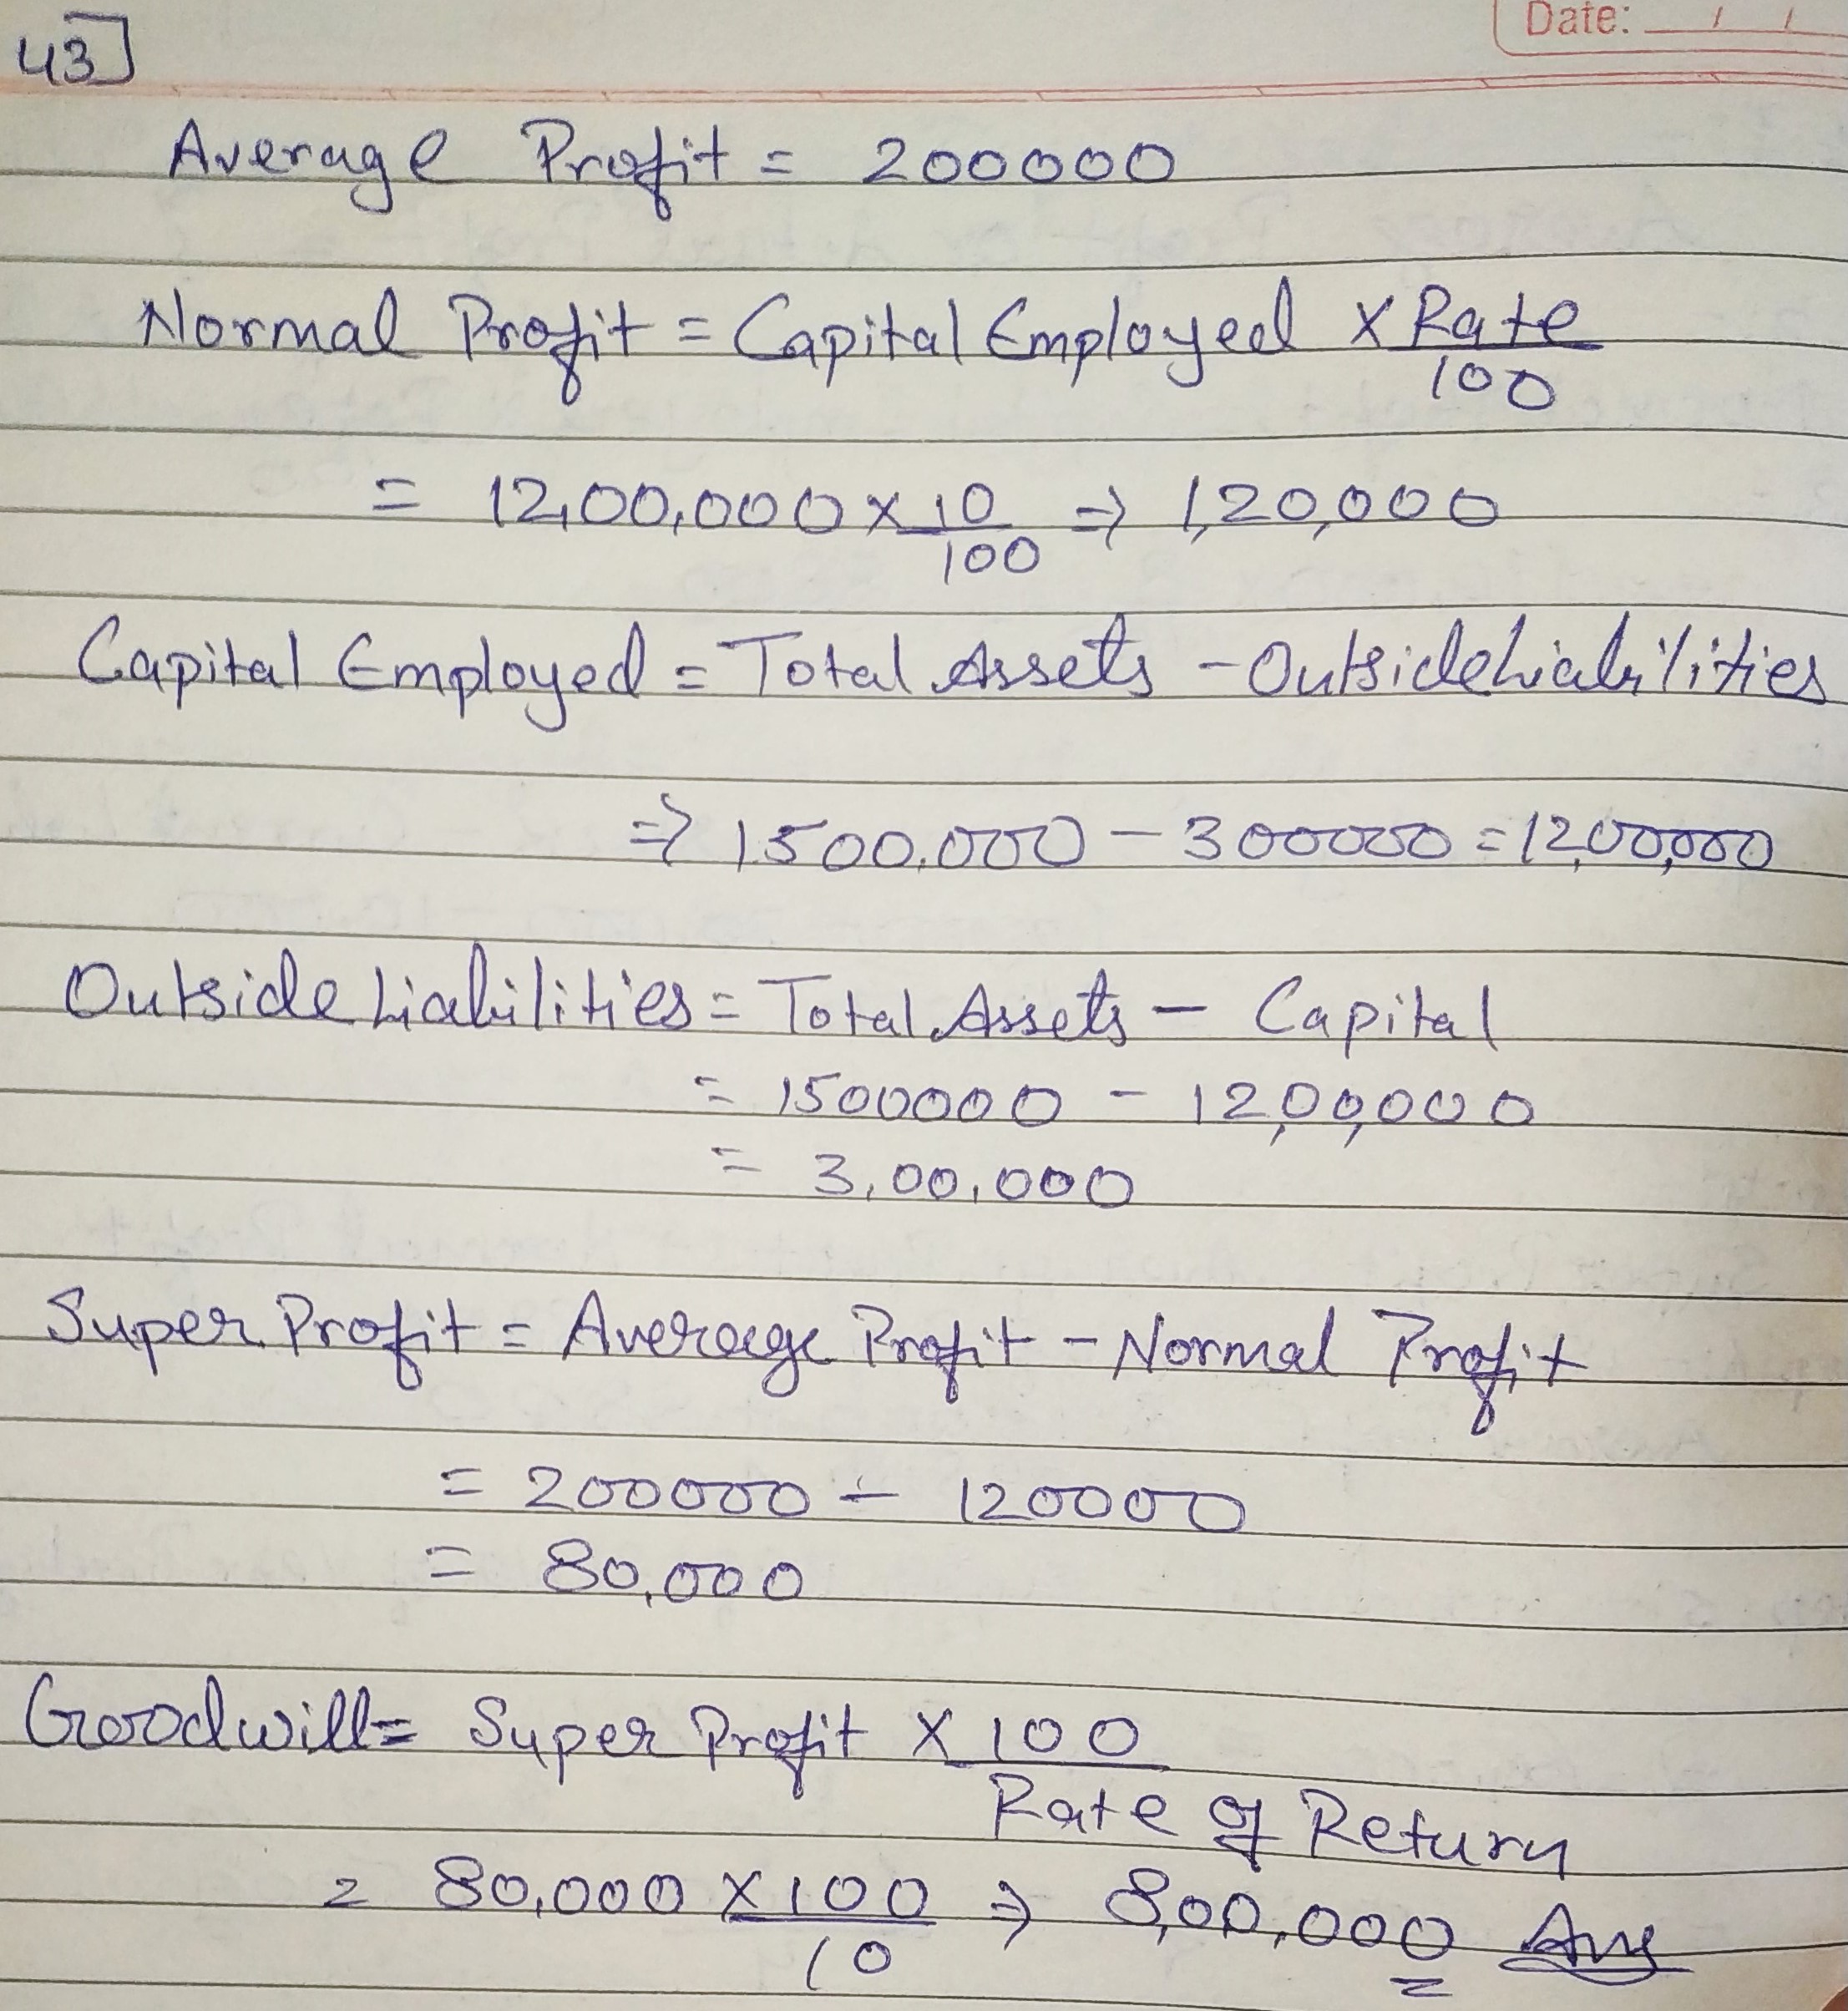 Date: / /
43]
Average Profit = 200000
Normal Profit = Capital Employed × Rate
100
= 12,00,000 × 10 ⇒ 1,20,000
100
Capital Employed = Total Assets - Outside Liabilities
⇒ 1500,000 - 300000 = 12,00,000
Outside Liabilities = Total Assets - Capital
= 1500000 - 12,00,000
= 3,00,000
Super Profit = Average Profit - Normal Profit
= 200000 - 120000
= 80,000
Goodwill = Super Profit × 100
Rate of Return
= 80,000 × 100 ⇒ 8,00,000 Ans
10